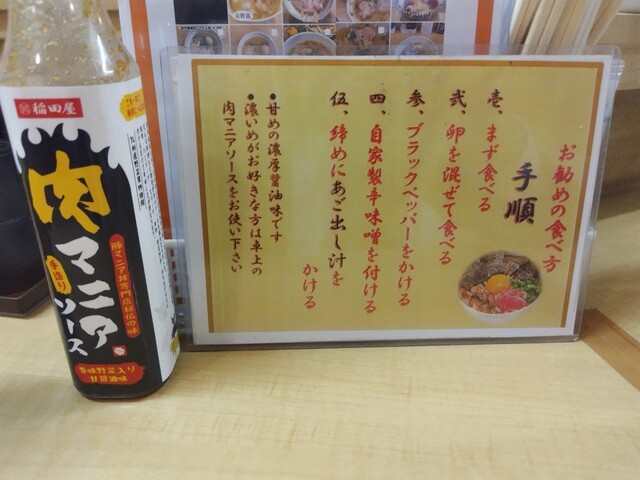 お勧めの食べ方
手順
壱、まず食べる
弐、卵を混ぜて食べる
参、ブラックペッパーをかける
四、自家製辛味噌を付ける
伍、締めにあご出し汁を
かける
●甘めの濃厚醤油味です
●濃いめがお好きな方は卓上の
肉マニアソースをお使い下さい
稲田屋
肉
マニア
手造り
ソース
豚マニア丼専門店秘伝の味
旨味野菜入り
甘醤油味